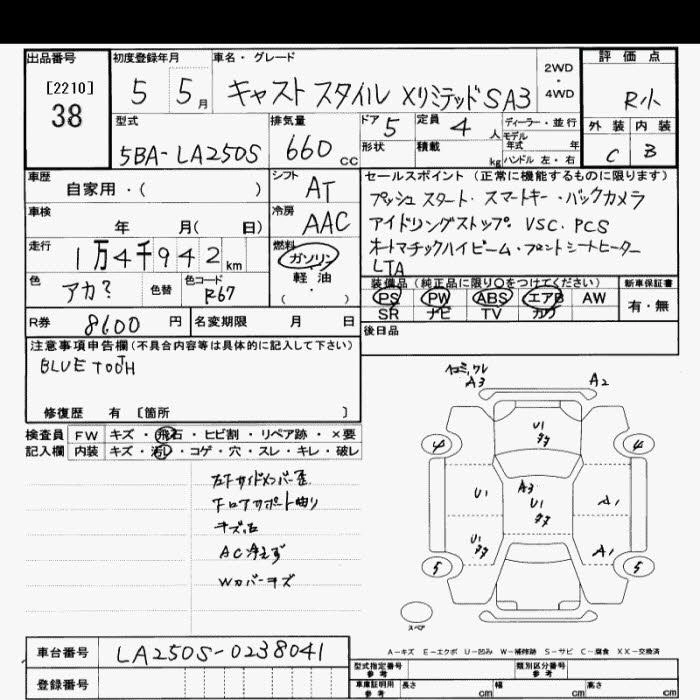 出品番号 初度登録年月 車名・グレード 評価点
[2210] 5 5月 キャスト スタイル Xリミテッド SA3 2WD・4WD R小
38
型式 排気量 ドア 5 定員 4 人 ディーラー・並行 外装 内装
5BA-LA250S 660 CC 形状 積載 kg モデル年式 年 C B
ハンドル 左・右
車歴 シフト セールスポイント (正常に機能するものに限ります)
自家用・( ) AT プッシュスタート・スマートキー・バックカメラ
車検 冷房 アイドリングストップ. VSC. PCS
年 月( 日) AAC オートマチックハイビーム・フロントシートヒーター
走行 燃料 LTA
1万4千942km ガソリン
軽・油
( ・ )
色 色替 色コード 装備品 (純正品に限り○をつけてください) 新車保証書
アカ? R67 PS PW ABS エアB AW 有・無
SR ナビ TV カワ
R券 8600円 名変期限 月 日 後日品
注意事項申告欄(不具合内容等は具体的に記入して下さい)
BLUE TOOTH
修復歴 有 [箇所 ]
検査員 FW キズ・飛石・ヒビ割・リペア跡・×要
記入欄 内装 キズ・汚レ・コゲ・穴・スレ・キレ・破レ
左下サイドメンバー歪
下ロアサポート曲り
キズ石
AC冷えず
Wカバーキズ
A3 A2
U1
4 4
U1 A3 A1
U1
U1 A1
5 5
スペア
A-キズ E-エクボ U-凹み W-補修跡 S-サビ C-腐食 XX-交換済
車台番号 LA250S-0238041
登録番号
型式指定番号 参考 類別区分番号 参考
車庫証明用 参考 長さ cm 幅 cm 高さ cm